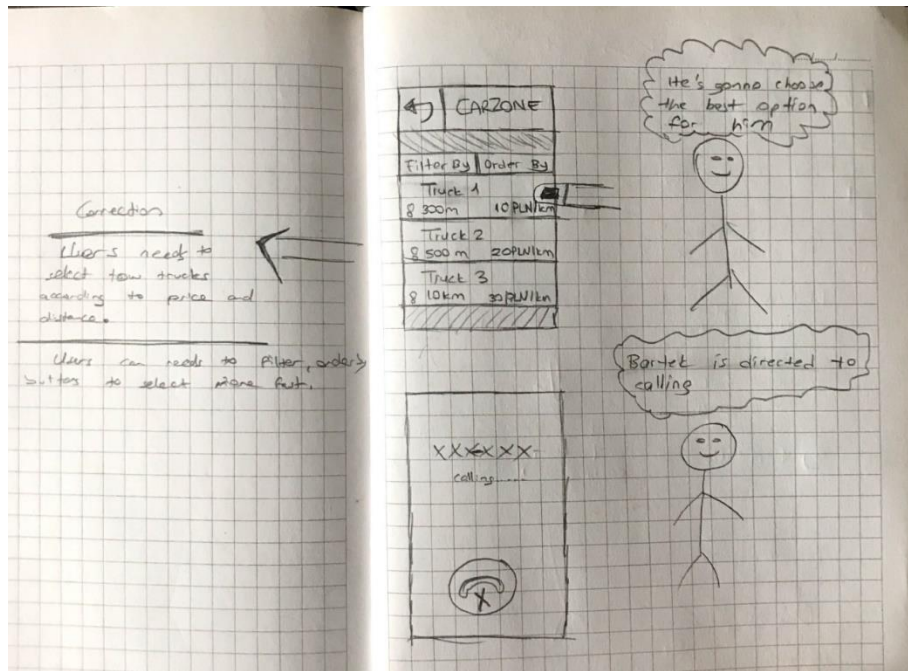 Correction
Users need to
select tow trucks
according to price and
distance.
Users can needs to filter, orderby
button to select more fast.
CARZONE
Filter By Order By
Truck 1
300m 10PLN/km
Truck 2
500 m 20PLN/km
Truck 3
10km 30PLN/km
He's gonna choose
the best option
for him
XXXXXX
calling......
X
Bartek is directed to
calling